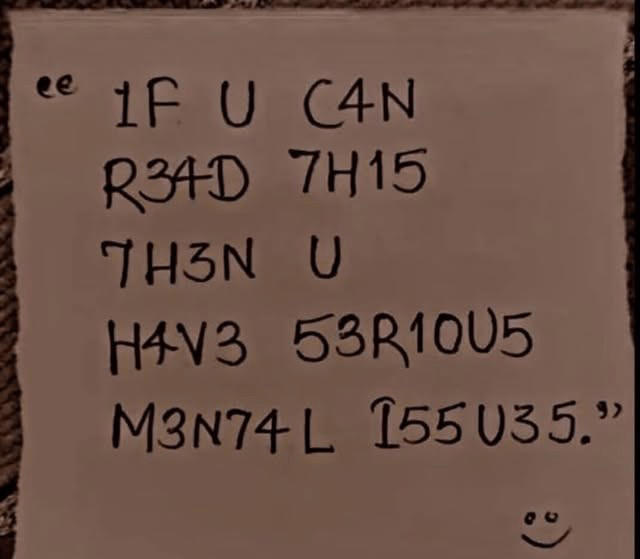 “ 1F U C4N
R34D 7H15
7H3N U
H4V3 53R10U5
M3N74L I55U35.”